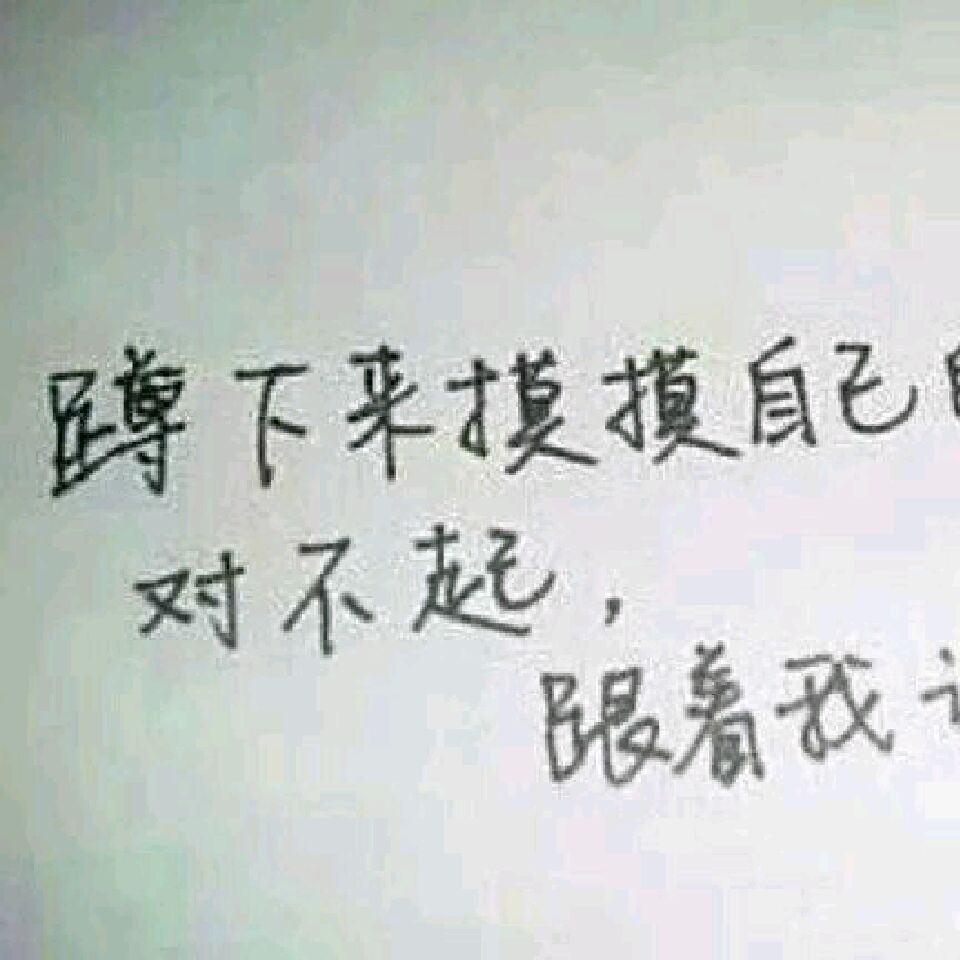 蹲下来摸摸自己
对不起,
跟着我